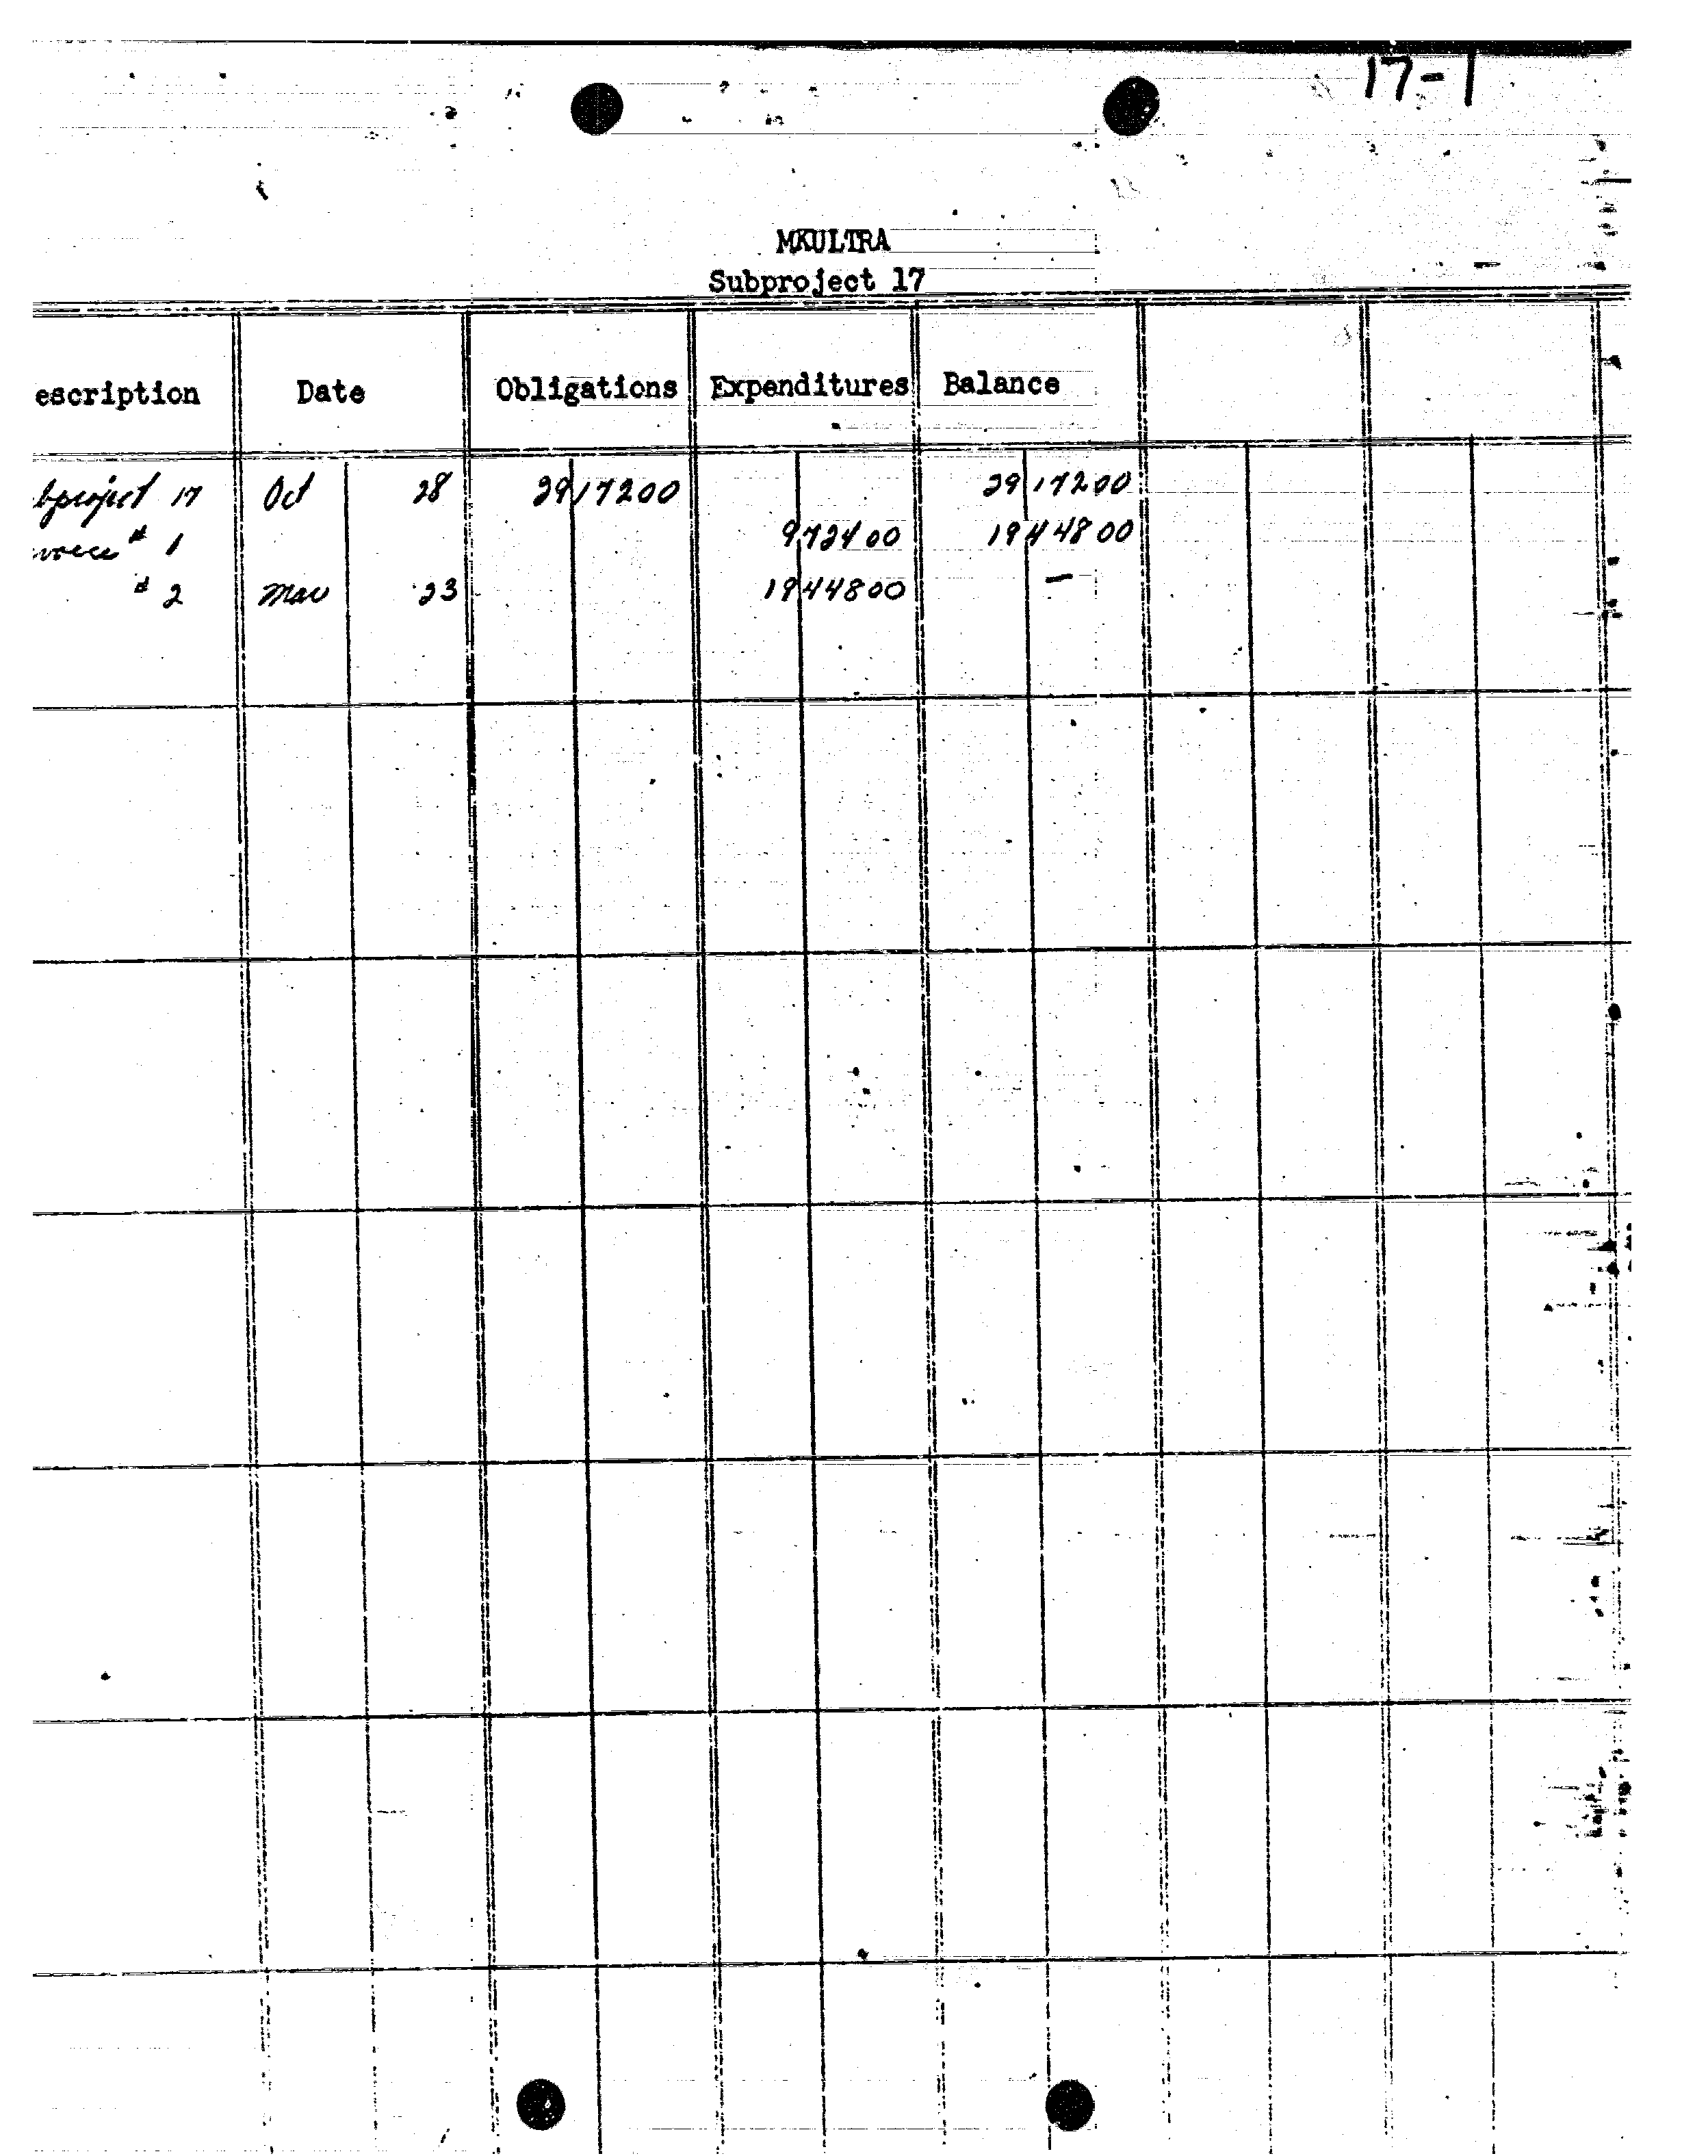 17-1
MKULTRA
Subproject 17
escription Date Obligations Expenditures Balance
bproject 17 Oct 28 2917200 2917200
nvoice # 1 972400 1944800
# 2 Mar 23 1944800 —